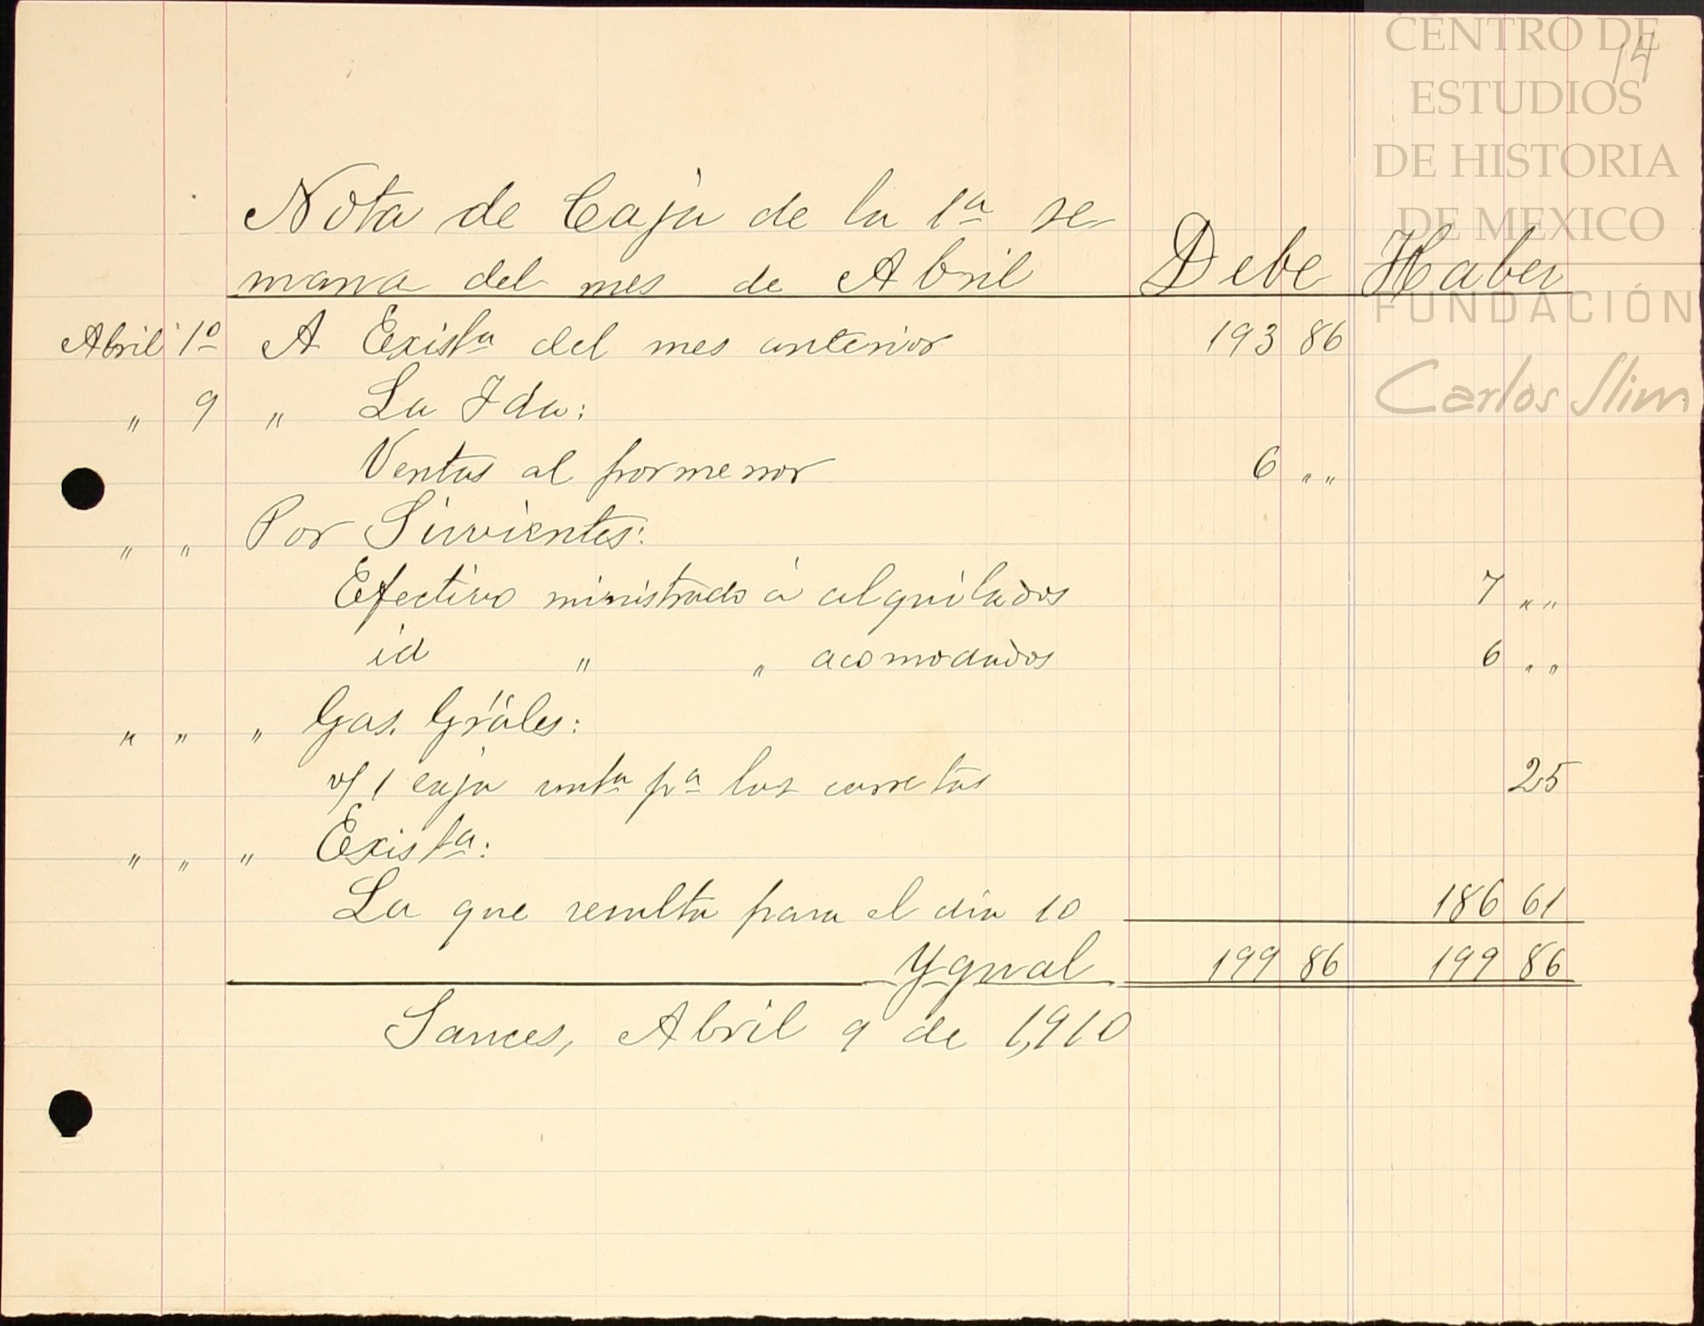 CENTRO DE
ESTUDIOS
DE HISTORIA
DE MEXICO
FUNDACIÓN
Carlos Slim
14
Nota de Caja de la 1ª se-
mana del mes de Abril Debe Haber
Abril 1º A Existª del mes anterior 193 86
" 9 " La Ida:
Ventas al pormenor 6 ""
" " Por Sirvientes:
Efectivo ministrado á alquilados 7 ""
id " " acomodados 6 ""
" " " Gas. Gráles:
v/ 1 caja untª pª las carretas 25
" " " Existª:
La que resulta para el dia 10 186 61
Ygual 199 86 199 86
Sances, Abril 9 de 1,910